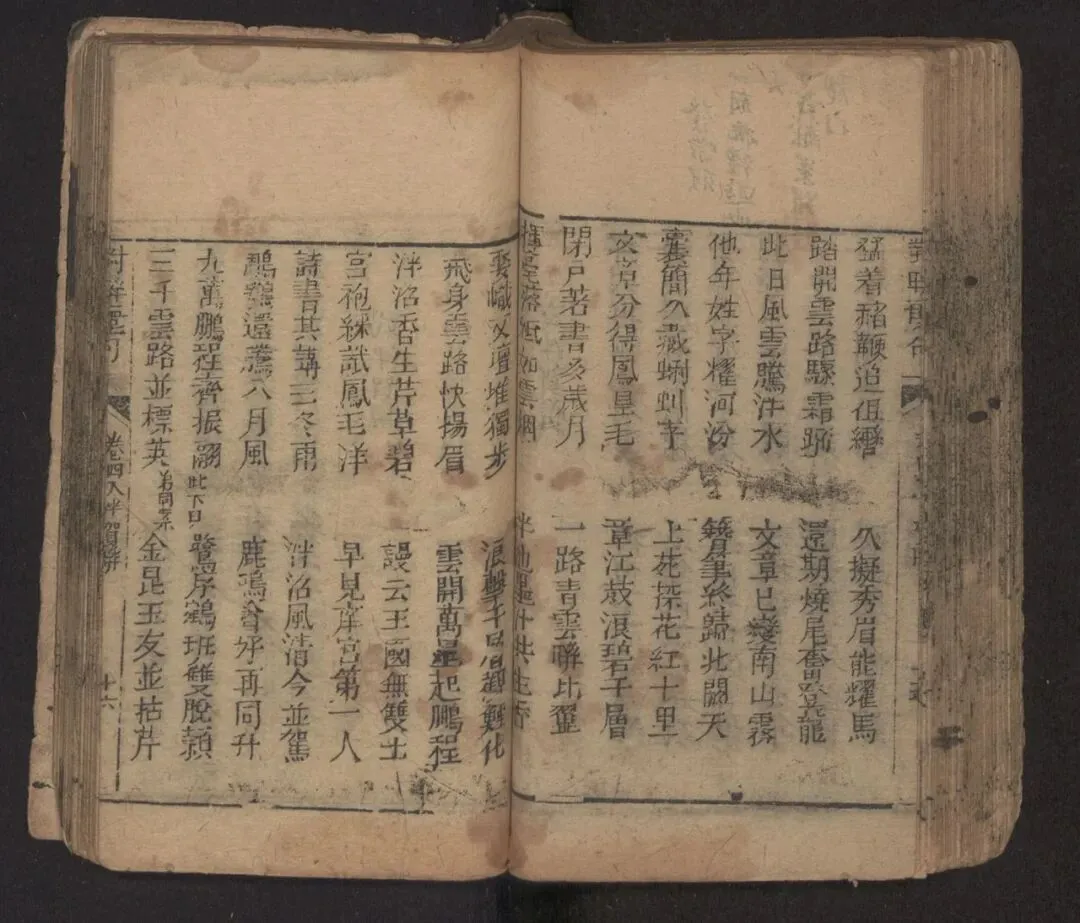 踏開雲路驟霜蹄
此日風雲騰泮水
他年姓字耀河汾
囊簡久藏字
文章分得鳳皇毛
閉戶著書多歲月
揮毫落紙如雲烟
久擬秀眉能耀馬
還期燒尾奮登龍
文章已變南山霧
筆終歸北闕天
上苑探花紅十里
章江鼓浪碧千層
一路青雲聯比翼
共生香
奪幟文壇推獨步
飛身雲路快揚眉
泮沼香生芹草碧
宮袍綵試鳳毛洋
詩書共講三冬雨
還騰八月風
九萬鵬程齊振翮此下兄
三千雲路並標英弟同案
浪擊千層鯤化
雲開萬里起鵬程
謾云王國無雙士
早見南宮第一人
泮沼風清今並駕
鹿鳴好再同升
鷺序鵷班雙脫穎
金昆玉友並拈芹
卷四入泮賀聯
十六